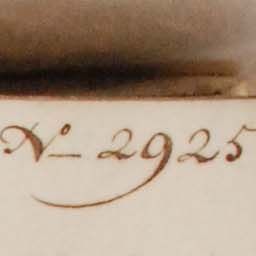 No 2925